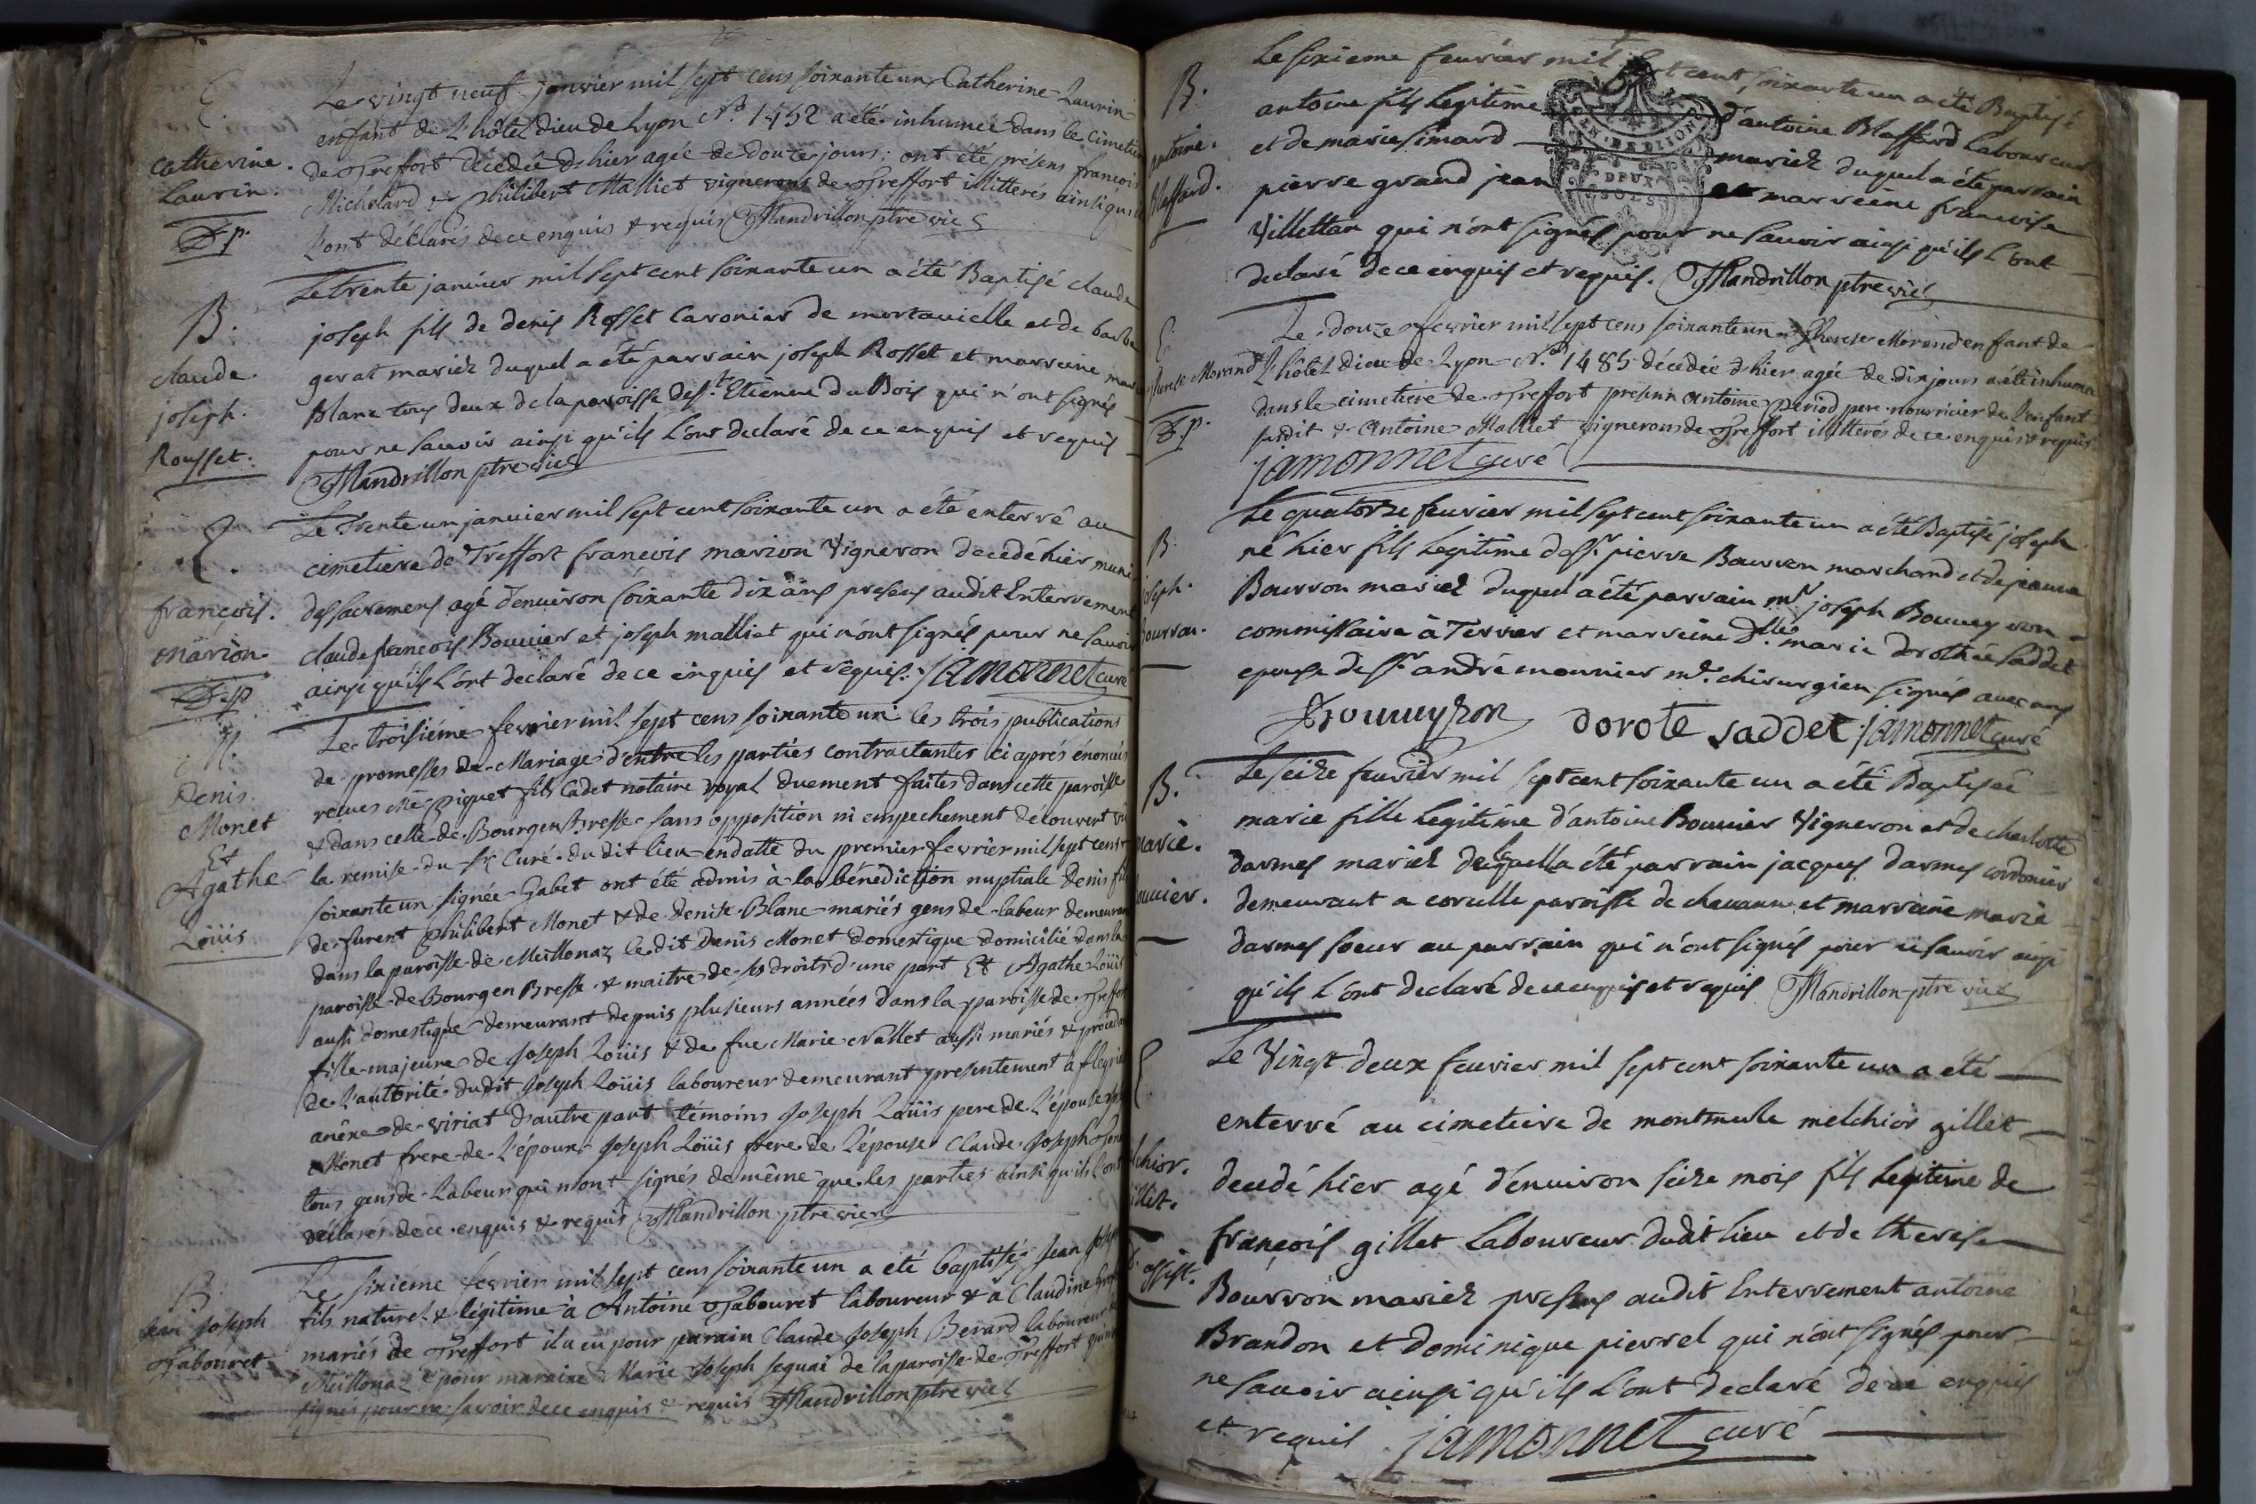 E.
catherine.
Laurin.
D. p.
Le vingt neuf janvier mil sept cens soixante un Catherine Laurin
enfant de L'hôtel dieu de Lyon No. 1452 a été inhumée dans le cimetier
de Treffort décédée d'hier agée de douze jours; ont été présens françois
Michelard & Philibert Malliet vignerons de Treffort illitterés ainsi qu'ils
l'ont déclarés de ce enquis & requis Mandrillon ptre vic
B.
claude.
joseph.
Rousset.
Le trente janvier mil sept cent soixante un a été Baptisé claude
joseph fils de denis Rosset Caronier de mortavielle et de barbe
gerat mariez duquel a été parrain joseph Rosset et marraine
Blanc tous deux de la paroisse de st. Etienne du Bois qui n'ont signés
pour ne savoir ainsi qu'ils l'ont declaré de ce enquis et requis
Mandrillon ptre vic
E.
françois.
marion.
D. p
Le trente un janvier mil sept cent soixante un a été enterré au
cimetiere de Treffort françois marion Vigneron decedé hier muni
des sacremens agé d'environ soixante dix ans presens audit Enterrement
claude françois Bouvier et joseph malliet qui n'ont signés pour ne savoir
ainsi qu'ils l'ont declaré de ce enquis et requis. jamonnet curé
M.
Denis
Monet
Et
Agathe
Loüis
Le troisiéme fevrier mil sept cens soixante un les trois publications
de promesses de Mariage d'entre les parties contractantes ci aprés énoncés
reçues Me piquet fils Cadet notaire royal duement faites dans cette paroisse
& dans celle de Bourgen Bresse sans opposition ni empechement découvert vû
la remise du sr. Curé du dit lieu en datte du premier fevrier mil sept cens
soixante un signée Gabet ont été admis à la bénediction nuptiale Denis fils
de furent Philibert Monet & de Denise Blanc mariés gens de labeur demeurant
dans la paroisse de Meillonaz le dit Denis Monet domestique domicilié dans la
paroisse de Bourgen Bresse & maitre de ses droits d'une part Et Agathe Loüis
aussi domestique demeurant depuis plusieurs années dans la paroisse de Treffort
fille majeure de Joseph Loüis & de fue Marie Vallet aussi mariés & procedant
de l'autorite dudit Joseph Loüis laboureur demeurant presentement à fleyria
anéxe de viriat d'autre part témoins Joseph Loüis pere de l'épouse
Monet frere de l'époux Joseph Loüis frere de l'épouse Claude Joseph
tous gens de labeur qui n'ont signés de même que les parties ainsi qu'ils l'ont
déclarés de ce enquis & requis Mandrillon ptre vic
B.
Jean Joseph
Tabouret
Le sixieme fevrier mil sept cens soixante un a été baptisé Jean Joseph
fils naturel & légitime à Antoine Tabouret laboureur & à Claudine
mariés de Treffort il a eu pour parain Claude Joseph Berard laboureur
Meillona & pour maraine Marie Joseph sequai de la paroisse de Treffort
signés pour ne savoir de ce enquis & requis Mandrillon ptre vic
B.
antoine.
Blaffard.
GEN. DE LION
DEUX
SOLS
Le sixieme fevrier mil sept cent soixante un a été Baptisé
antoine fils legitime d'antoine Blaffard Laboureur
et de marie simard mariez duquel a été parrain
pierre grand jean et marreine françoise
Villettan qui n'ont signés pour ne savoir ainsi qu'ils l'ont
declaré de ce enquis et requis. Mandrillon ptre vic
E.
Morand
D. p.
Le douze fevrier mil sept cens soixante un Therese Morand enfant de
L'hôtel dieu de Lyon No. 1485 décédée d'hier agée de dix jours a été inhumée
dans le cimetiere de Treffort présens Antoine period pere nourricier de l'enfant
susdit & Antoine Malliet vignerons de Treffort illitterés de ce enquis & requis
jamonnet curé
B.
joseph.
bourron.
Le quatorze fevrier mil sept cent soixante un a été Baptisé joseph
né hier fils legitime de sr. pierre Bourron marchand et de jeanne
Bourron mariez duquel a été parrain mr. joseph Bouveyron
commissaire à Terrier et marreine Dlle. marie dorothée saddet
epouse de sr. andré mounier me. chirurgien signés avec nous
Bouveyron dorote saddet jamonnet curé
B.
marie.
bouvier.
Le seize fevrier mil sept cent soixante un a été Baptisée
marie fille legitime d'antoine Bouvier Vigneron et de charlotte
darmes mariez de laquelle a été parrain jacques darmes cordonier
demeurant a corcelle paroisse de chavanne et marraine marie
darmes soeur au parrain qui n'ont signés pour ne savoir ainsi
qu'ils l'ont declaré de ce enquis et requis Mandrillon ptre vic
E
melchior.
gillet.
assist.
Le Vingt deux fevrier mil sept cent soixante un a été
enterré au cimetiere de montmerle melchior gillet
decedé hier agé d'environ seize mois fils legitime de
françois gillet Laboureur dudit lieu et de therese
Bourron mariez presens audit Enterrement antoine
Brandon et dominique pierrel qui n'ont signés pour
ne savoir ainsi qu'ils l'ont declaré de ce enquis
et requis jamonnet curé